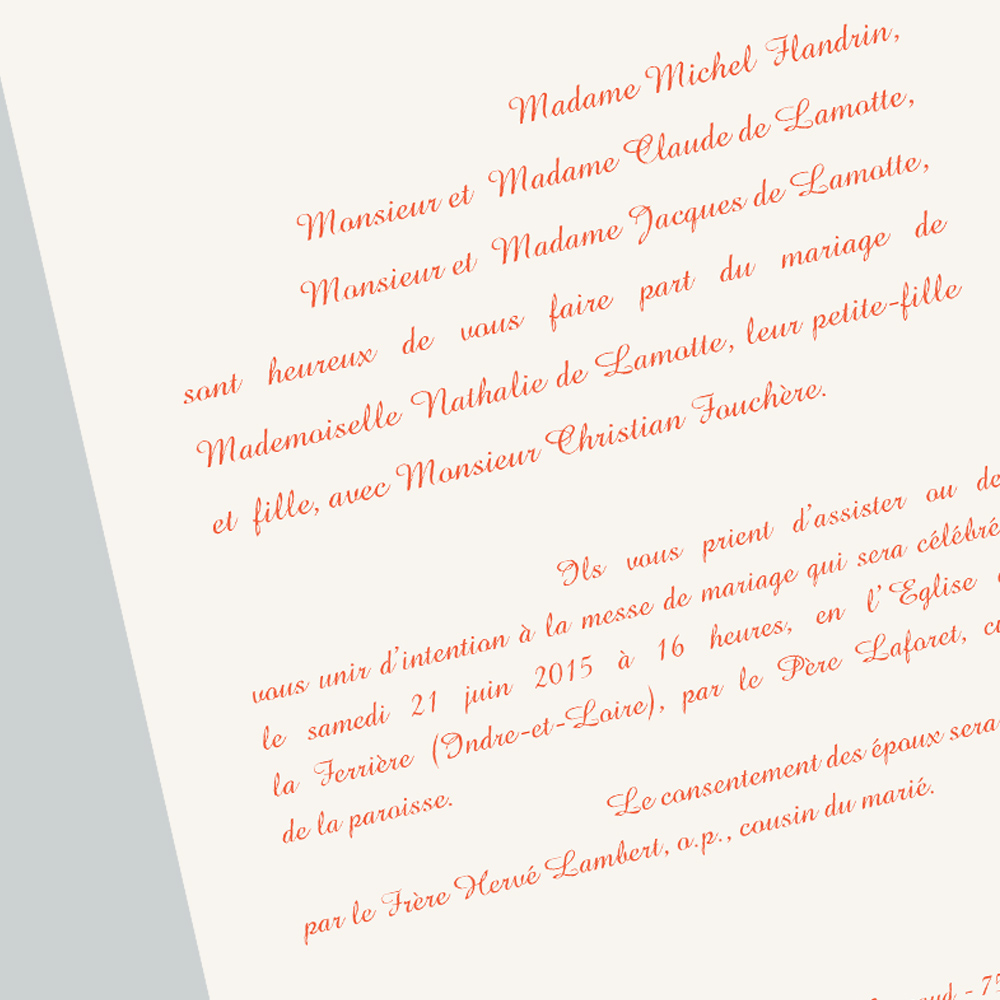 Madame Michel Flandrin,
Monsieur et Madame Claude de Lamotte,
Monsieur et Madame Jacques de Lamotte,
sont heureux de vous faire part du mariage de
Mademoiselle Nathalie de Lamotte, leur petite-fille
et fille, avec Monsieur Christian Fouchère.
Ils vous prient d'assister ou de
vous unir d'intention à la messe de mariage qui sera célébré
le samedi 21 juin 2015 à 16 heures, en l'Eglise
la Ferrière (Indre-et-Loire), par le Père Laforet,
de la paroisse.
Le consentement des époux sera
par le Frère Hervé Lambert, o.p., cousin du marié.
- 75